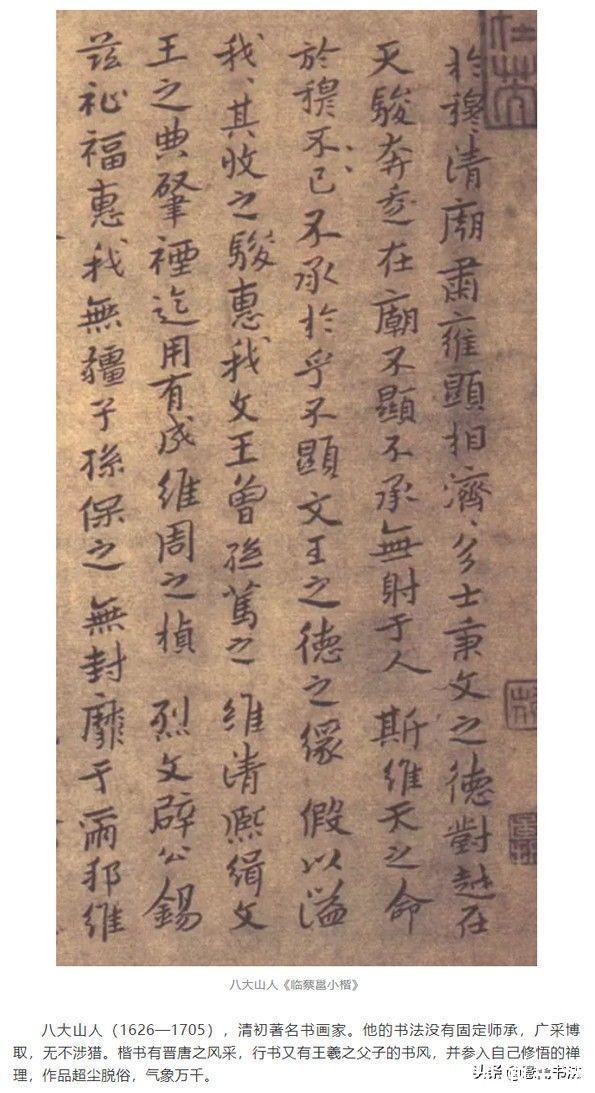 於穆、清廟肅雝顯相濟、多士秉文之德對越在
天駿奔走在廟不顯不承無射于人 斯維天之命
於穆不已不承於乎不顯文王之德之 假以溢
我、其收之駿惠我文王曾孫篤之 維清熙緝文
王之典肇禋迄用有成維周之楨 烈文辟公錫
茲祉福惠我無疆子孫保之 無封靡于爾邦維
八大山人《临蔡邕小楷》
八大山人（1626—1705），清初著名书画家。他的书法没有固定师承，广采博
取，无不涉猎。楷书有晋唐之风采，行书又有王羲之父子的书风，并参入自己修悟的禅
理，作品超尘脱俗，气象万千。
头条 书法